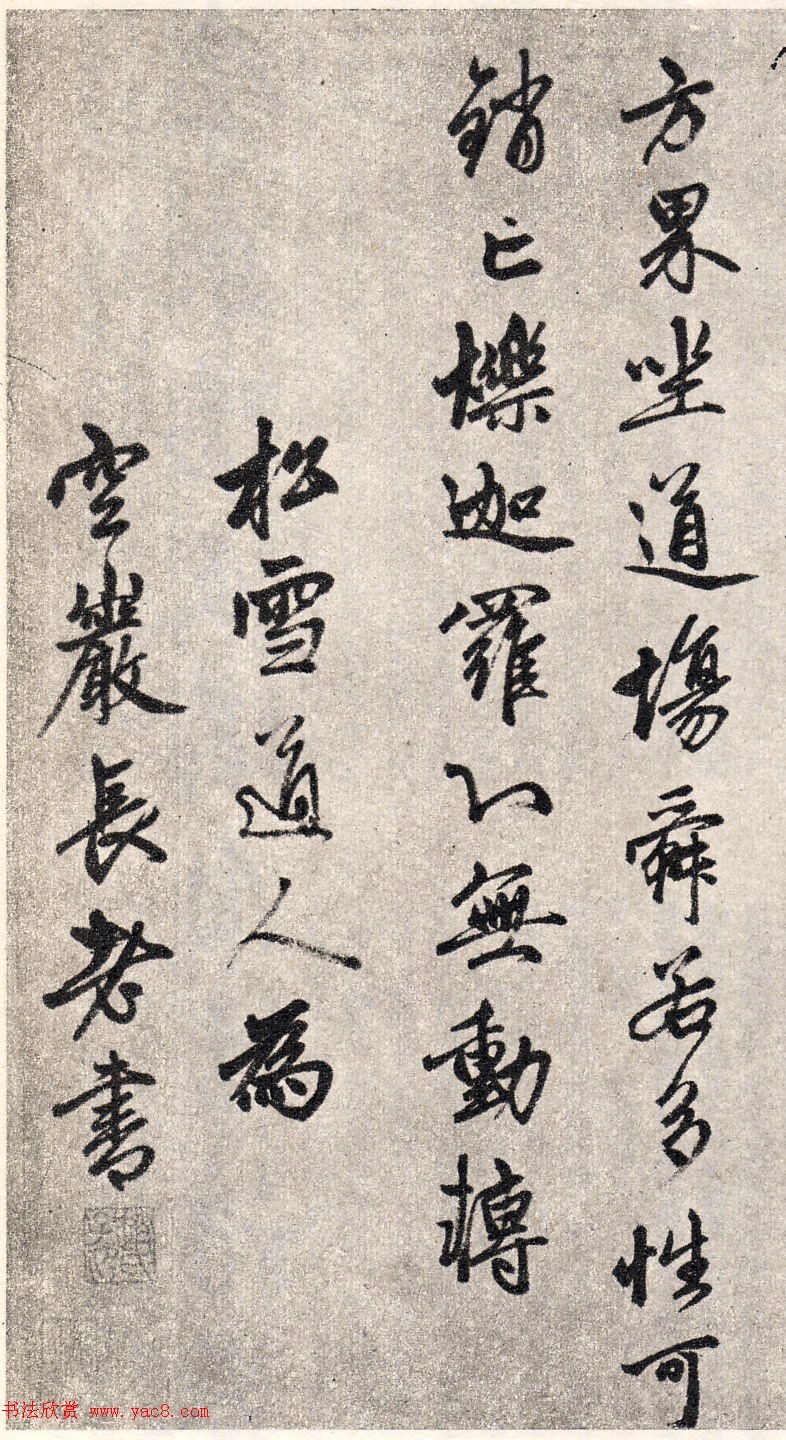 方界坐道場舜若多性可
銷亡爍迦羅心無動轉
松雪道人為
空巖長老書
书法欣赏 www.yac8.com